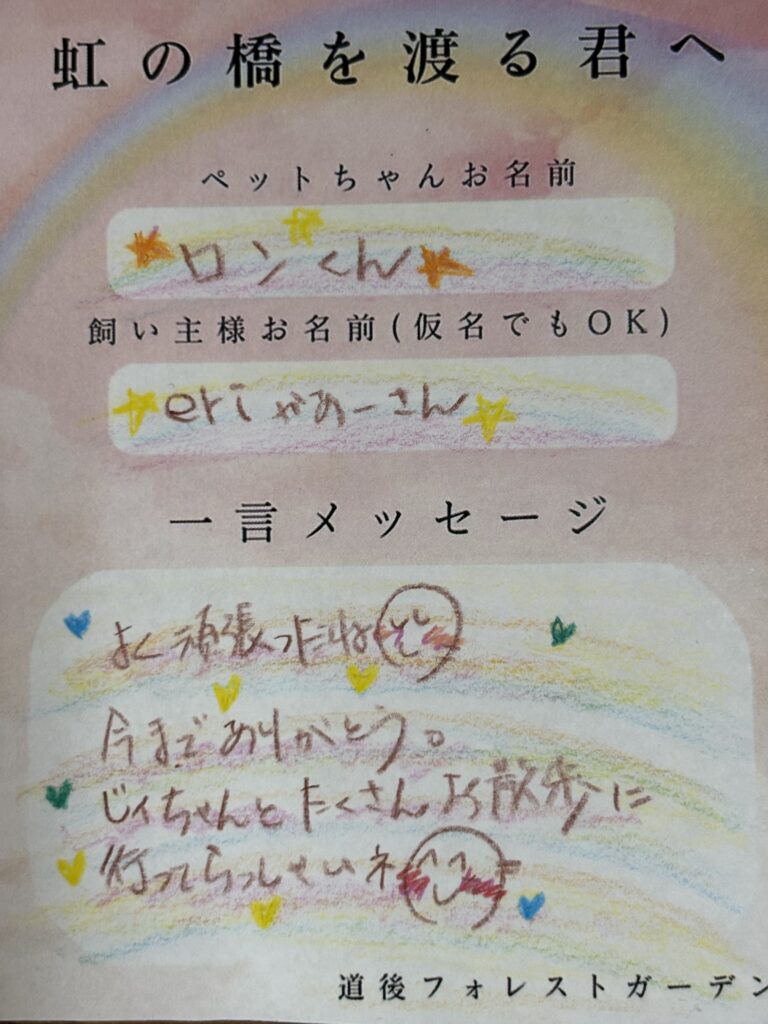 虹の橋を渡る君へ
ペットちゃんお名前
ロンくん
飼い主様お名前(仮名でもOK)
eriかあーさん
一言メッセージ
よく頑張ったね
今までありがとう。
じィちゃんとたくさんお散歩に
行ってらっしゃいネ
道後フォレストガーデン